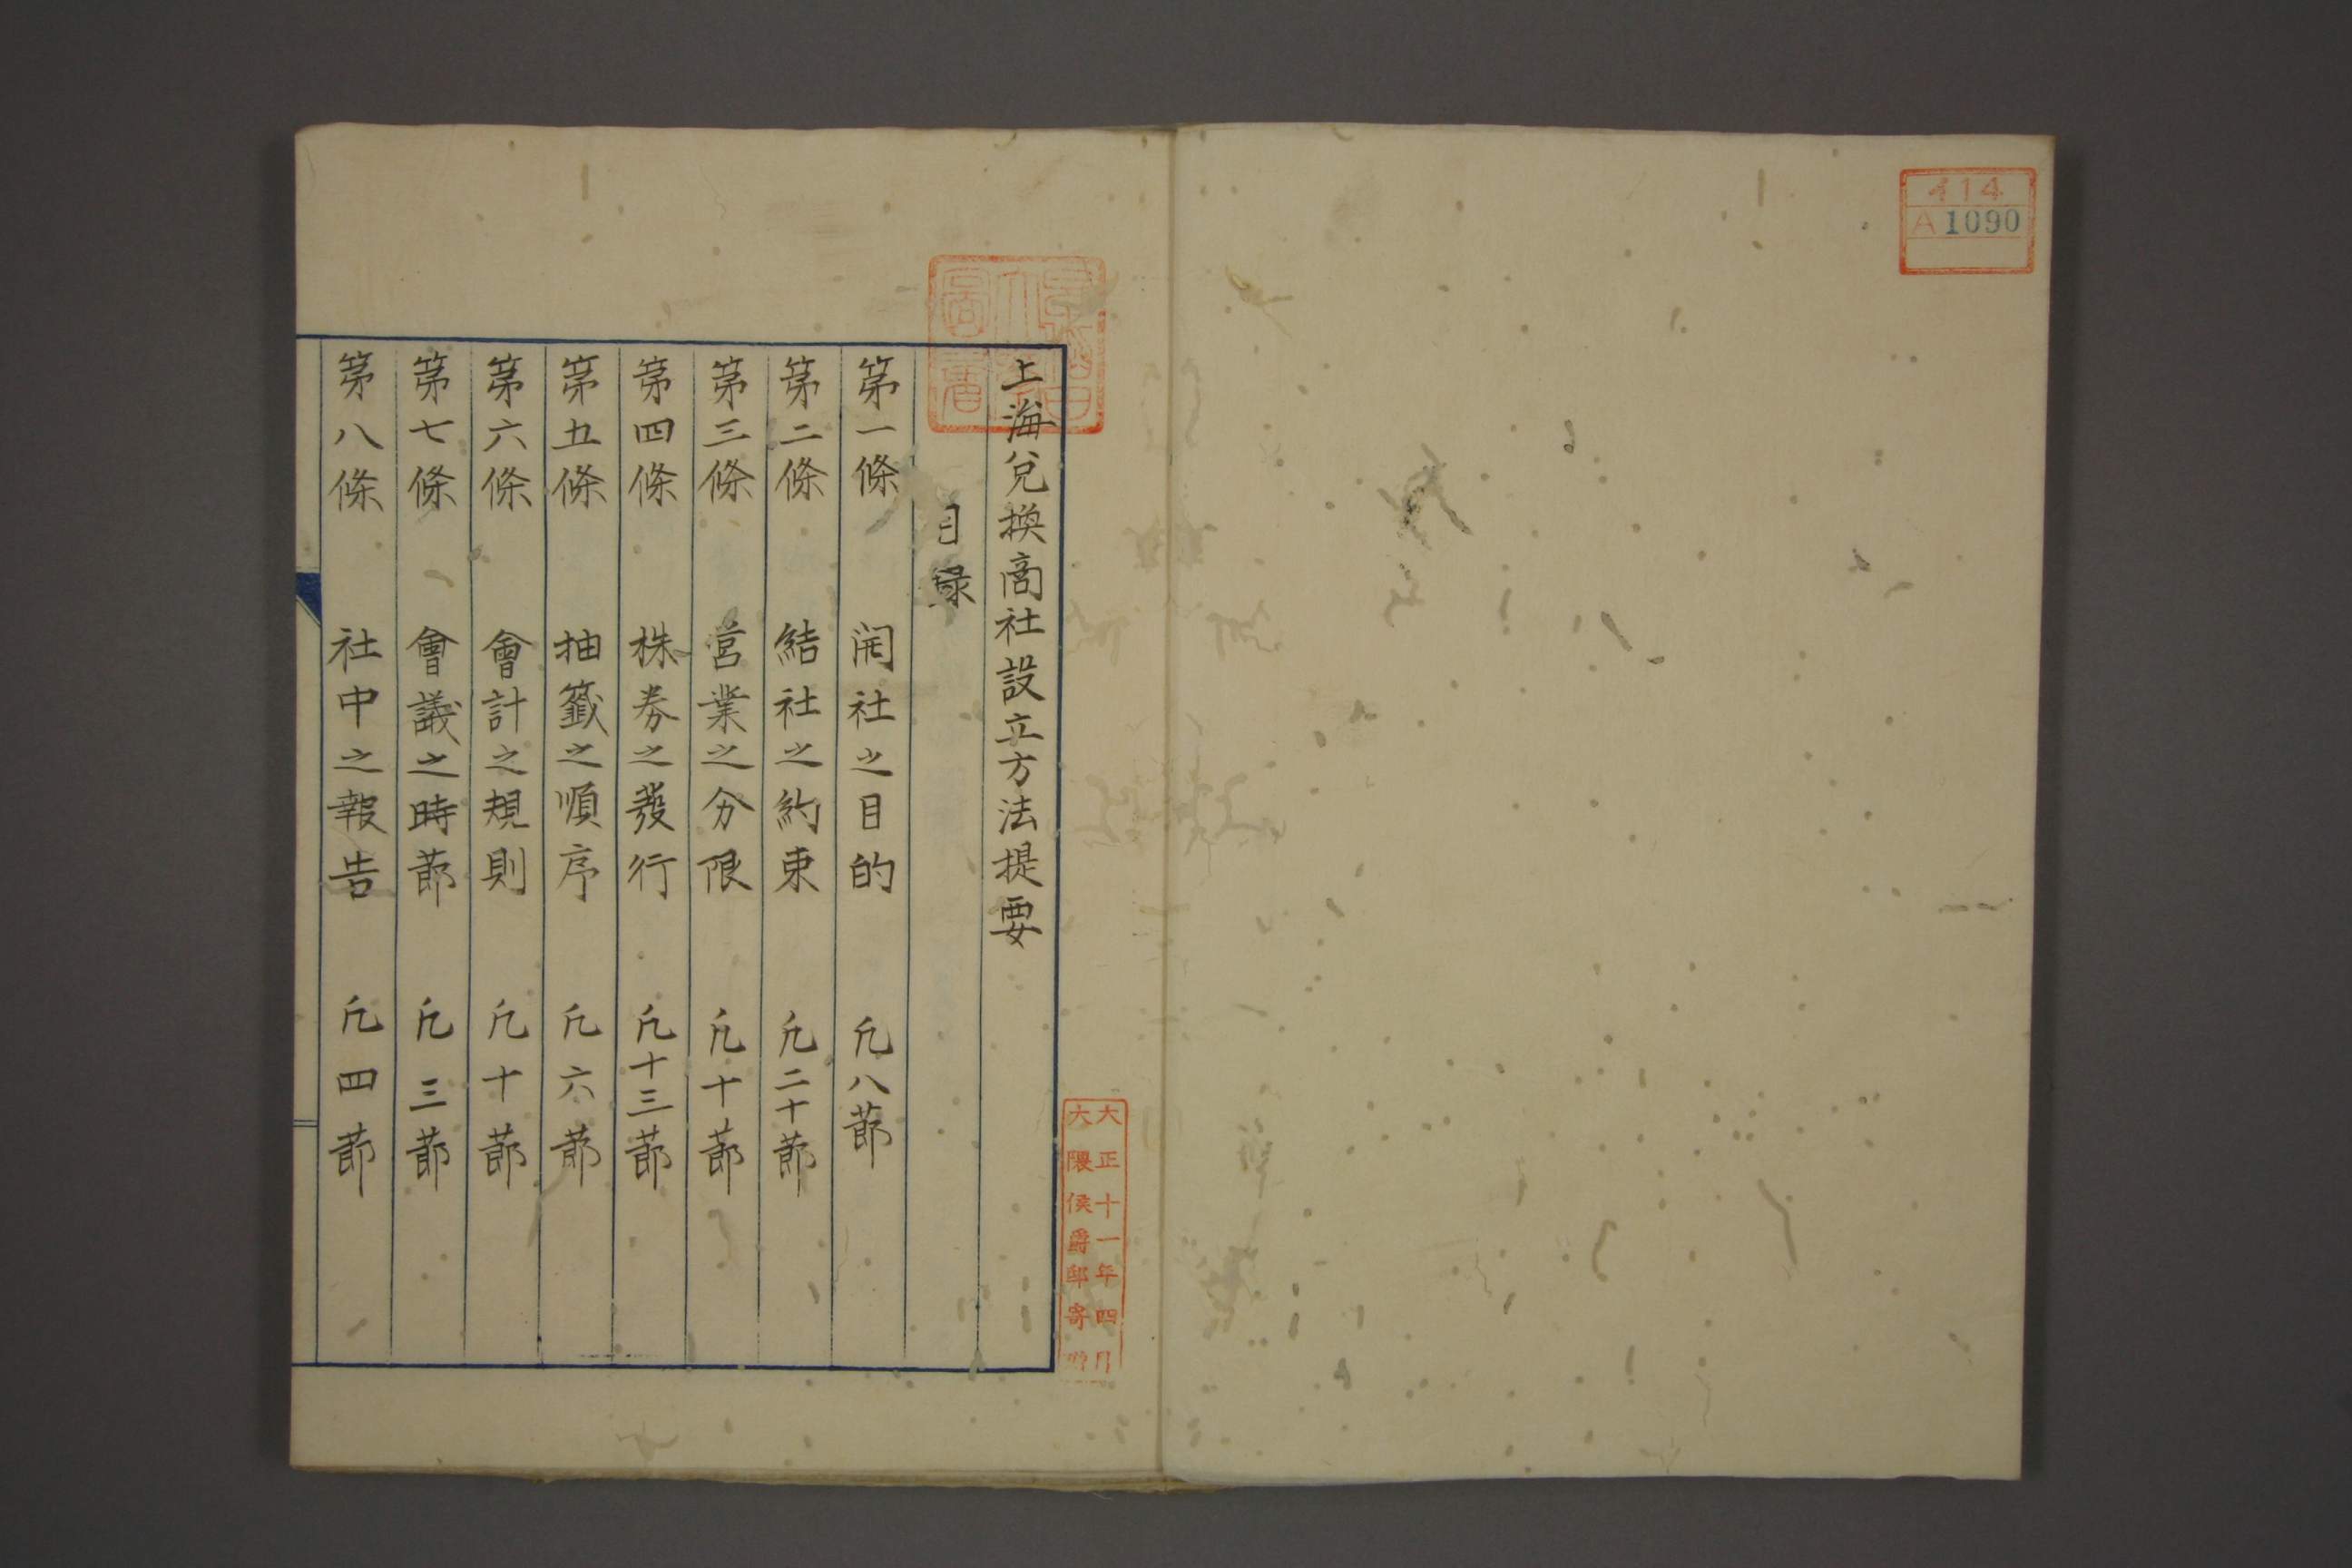 414
A 1090
早稲田大學圖書
上海兌換商社設立方法提要
目録
第一條 開社之目的 凢八莭
第二條 結社之約束 凢二十莭
第三條 営業之分限 凢十莭
第四條 株券之發行 凢十三莭
第五條 抽籤之順序 凢六莭
第六條 會計之規則 凢十莭
第七條 會議之時莭 凢三莭
第八條 社中之報告 凢四莭
大正十一年四月
大隈侯爵邸寄贈